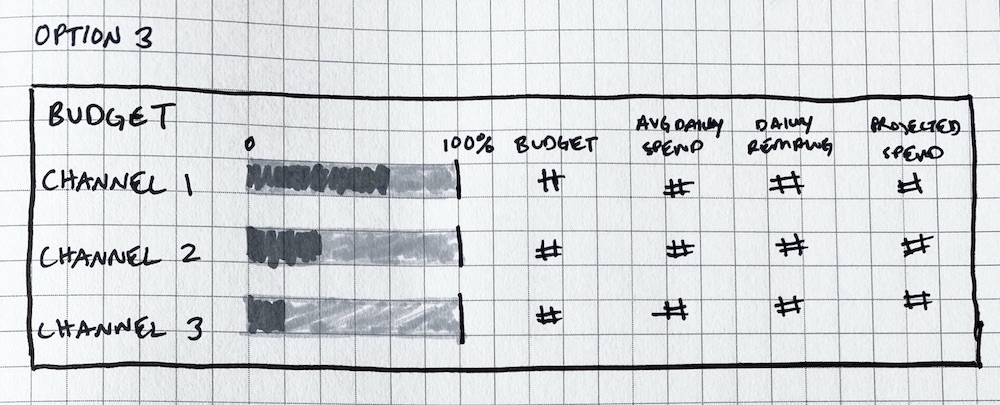 OPTION 3
BUDGET
0 100% BUDGET AVG DAILY SPEND DAILY REMAING PROJECTED SPEND
CHANNEL 1 # # # #
CHANNEL 2 # # # #
CHANNEL 3 # # # #